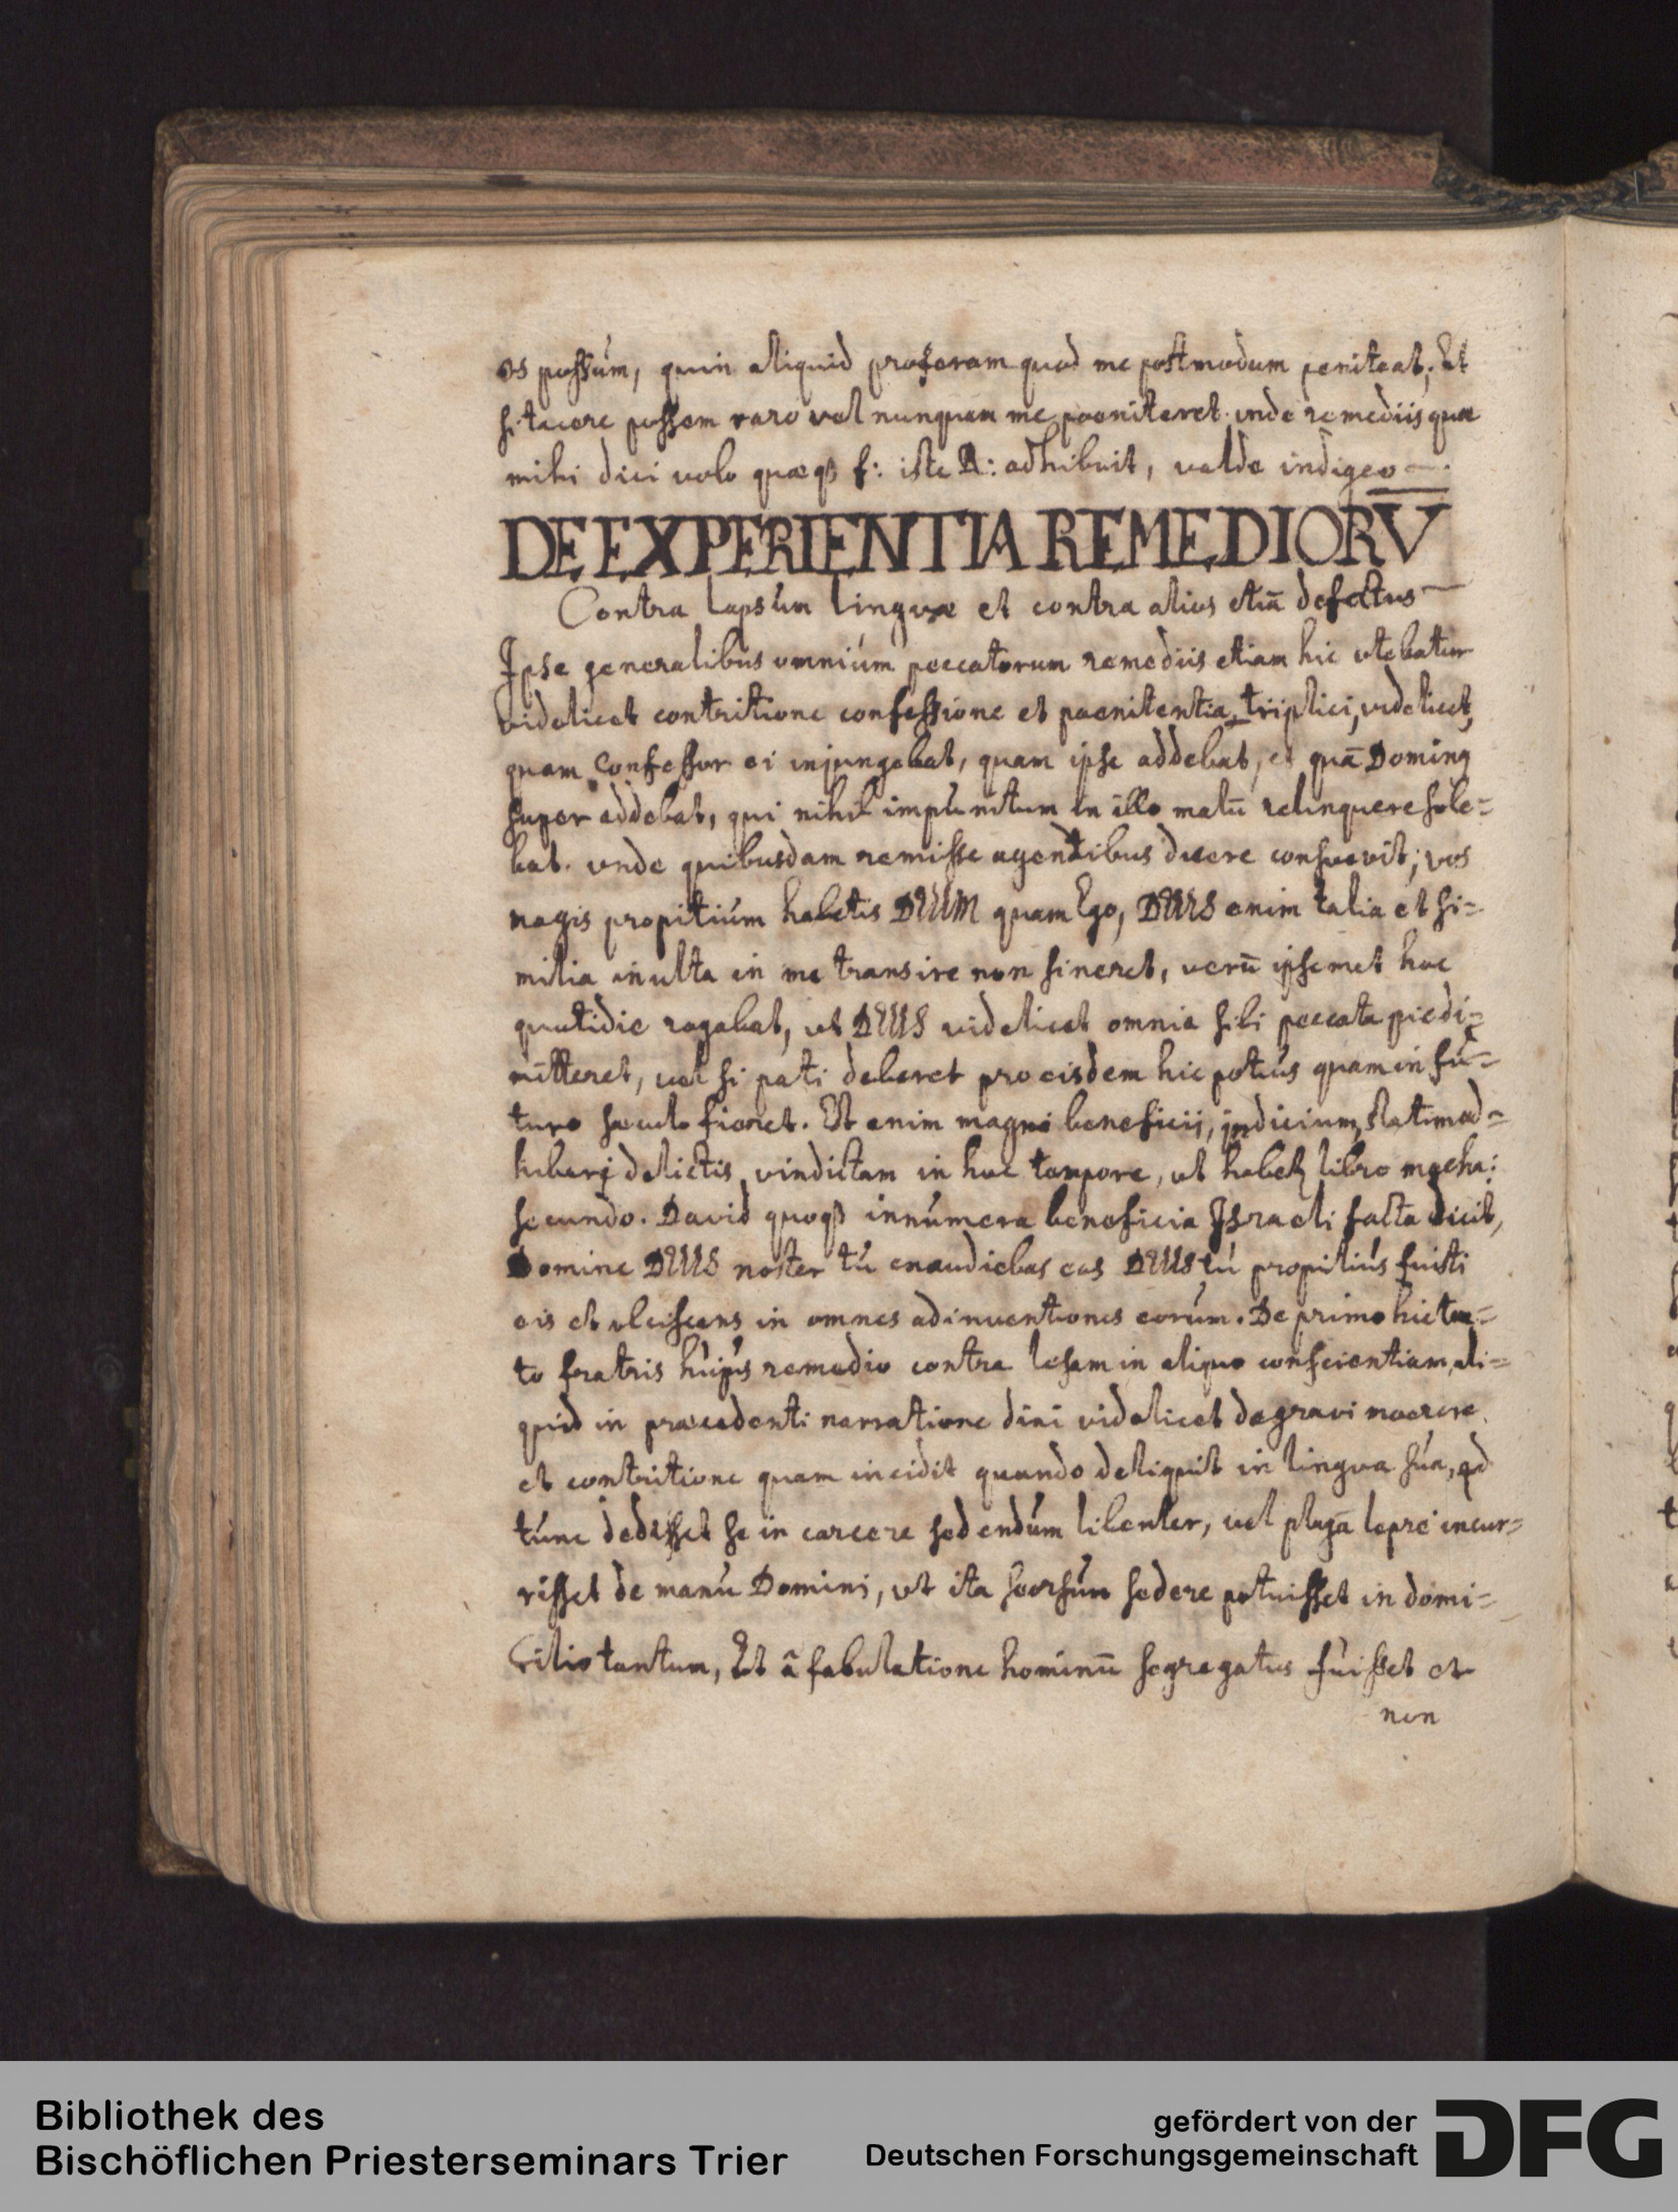 os possúm, quin aliquid proferam quod me postmodum peniteat, Et
si tacere possem raro vel nunquam me poeniteret. unde remediis quae
mihi dici volo quaeqȝ f: iste R: adhibuit, valde indigeo
DE EXPERIENTIA REMEDIORV̄
Contra lapsúm linguae et contra alios etiā defectus
Ipse generalibus omniúm peccatorum remediis etiam hic utebatur
videlicet contritione confessione et paenitentia, triplici, videlicet,
quam Confessor ei injungebat, quam ipse addebat, et quā Dominꝰ
super addebat, qui nihil impúnitum in illo malū relinquere sole=
bat. vnde quibusdam remisse agentibus dicere consuevit; vos
magis propitiúm habetis DEUM quam Ego, DEUS enim talia et si=
milia inulta in me transire non sineret, verū ipsemet hoc
quotidie rogabat, ut DEUS videlicet omnia sibi peccata pie di=
mitteret, vel si pati deberet pro eisdem hic potiús quam in fú=
turo saeculo fieret. Est enim magni beneficii, indicium, statim ad=
hiberi delictis vindictam in hoc tempore, ut habetur libro macha:
secundo. David quoqȝ innúmera beneficia Israeli facta dicit,
Domine DEUS noster tú exaudiebas eos DEUS tú propitiús fuisti
eis et ulciscens in omnes adinventiones eorúm. De primo hic tac=
to fratris hújús remedio contra lesam in aliquo conscientiam, ali=
quid in praecedenti narratione dixi videlicet de gravi moerore
et contritione quam incidit quando deliquit in lingua súa, qd
túnc dedisset se in carcere sedendúm libenter, vel plagā lepre incur=
risset de manú Domini, ut ita seorsúm sedere potuisset in domi=
cilio tantum, Et ā fabulatione hominū segregatus fúisset et
non
Bibliothek des
Bischöflichen Priesterseminars Trier
gefördert von der
Deutschen Forschungsgemeinschaft
DFG